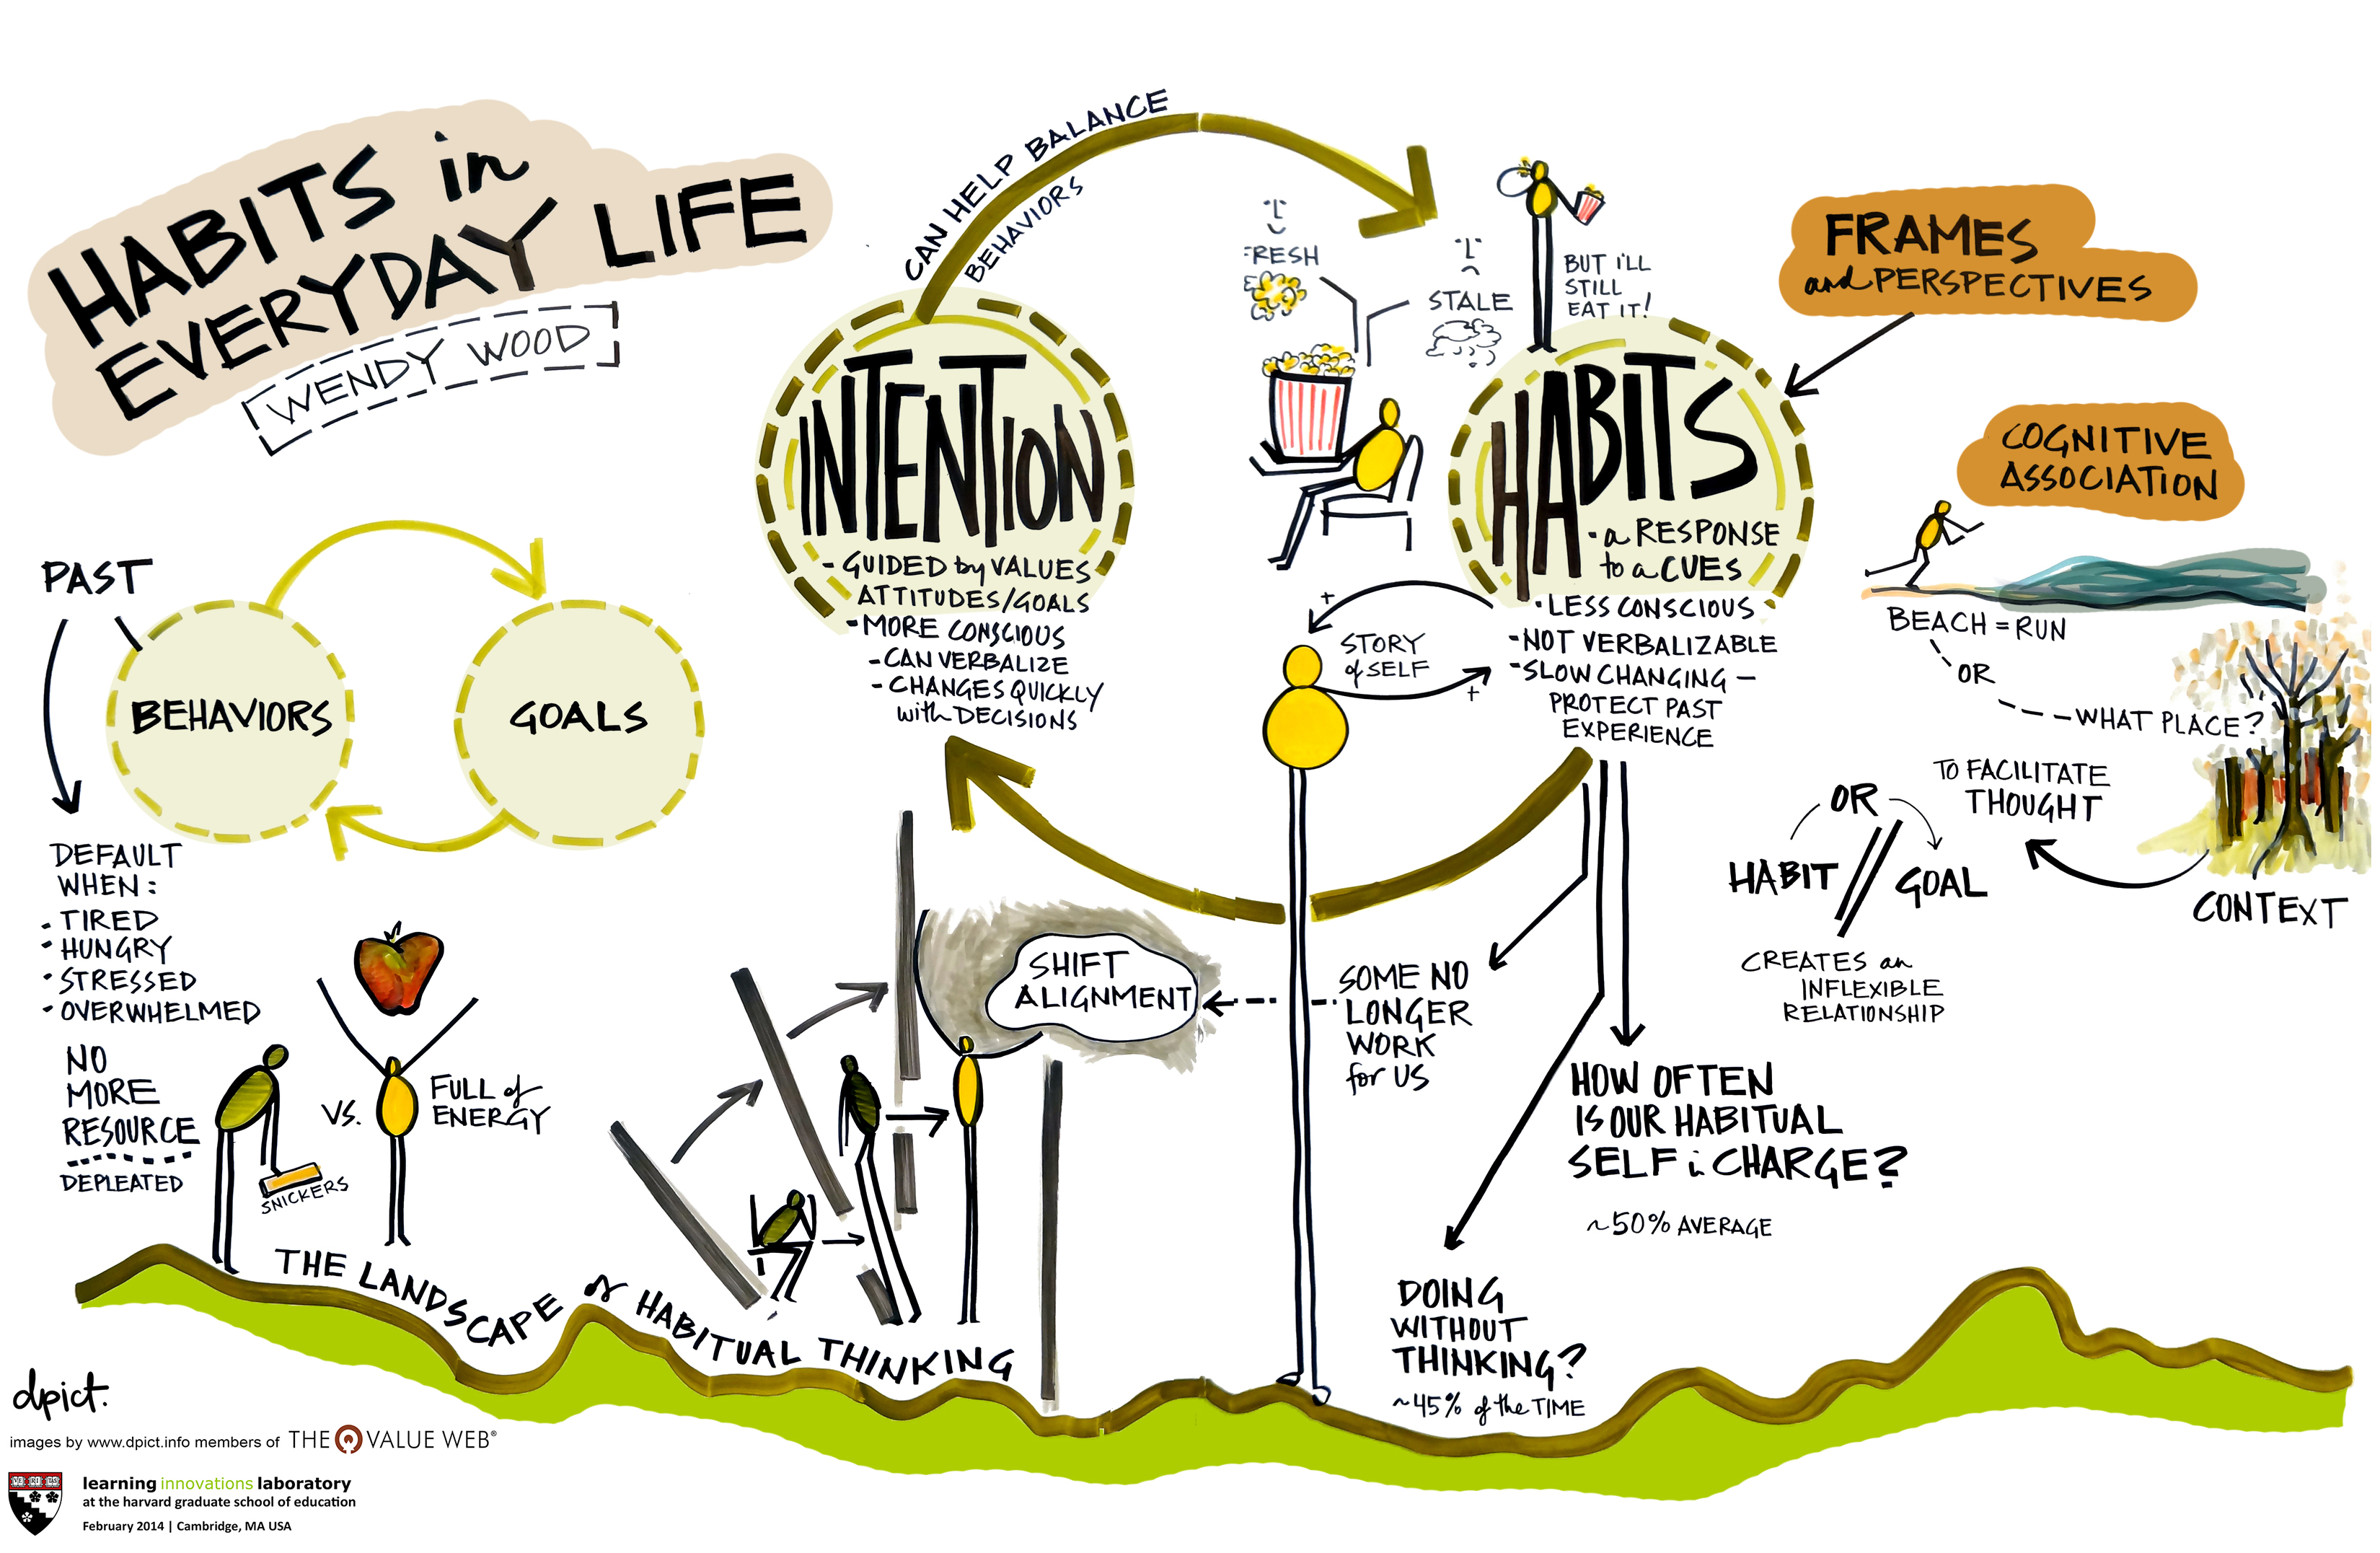 HABITS in
EVERYDAY LIFE
WENDY WOOD
PAST
BEHAVIORS
GOALS
DEFAULT
WHEN:
• TIRED
• HUNGRY
• STRESSED
• OVERWHELMED
NO
MORE
RESOURCE
DEPLEATED
SNICKERS
VS.
FULL of
ENERGY
CAN HELP BALANCE
BEHAVIORS
INTENTION
- GUIDED by VALUES
ATTITUDES/GOALS
- MORE CONSCIOUS
- CAN VERBALIZE
- CHANGES QUICKLY
with DECISIONS
FRESH
STALE
BUT I'LL
STILL
EAT IT!
HABITS
• a RESPONSE
to a CUES
• LESS CONSCIOUS
- NOT VERBALIZABLE
- SLOW CHANGING -
PROTECT PAST
EXPERIENCE
+
STORY
of SELF
+
FRAMES
and PERSPECTIVES
COGNITIVE
ASSOCIATION
BEACH = RUN
OR
WHAT PLACE?
CONTEXT
TO FACILITATE
THOUGHT
OR
HABIT // GOAL
CREATES an
INFLEXIBLE
RELATIONSHIP
SHIFT
ALIGNMENT
SOME NO
LONGER
WORK
for US
HOW OFTEN
IS OUR HABITUAL
SELF in CHARGE?
~50% AVERAGE
DOING
WITHOUT
THINKING?
~45% of the TIME
THE LANDSCAPE of HABITUAL THINKING
dpict.
images by www.dpict.info members of THE VALUE WEB®
learning innovations laboratory
at the harvard graduate school of education
February 2014 | Cambridge, MA USA